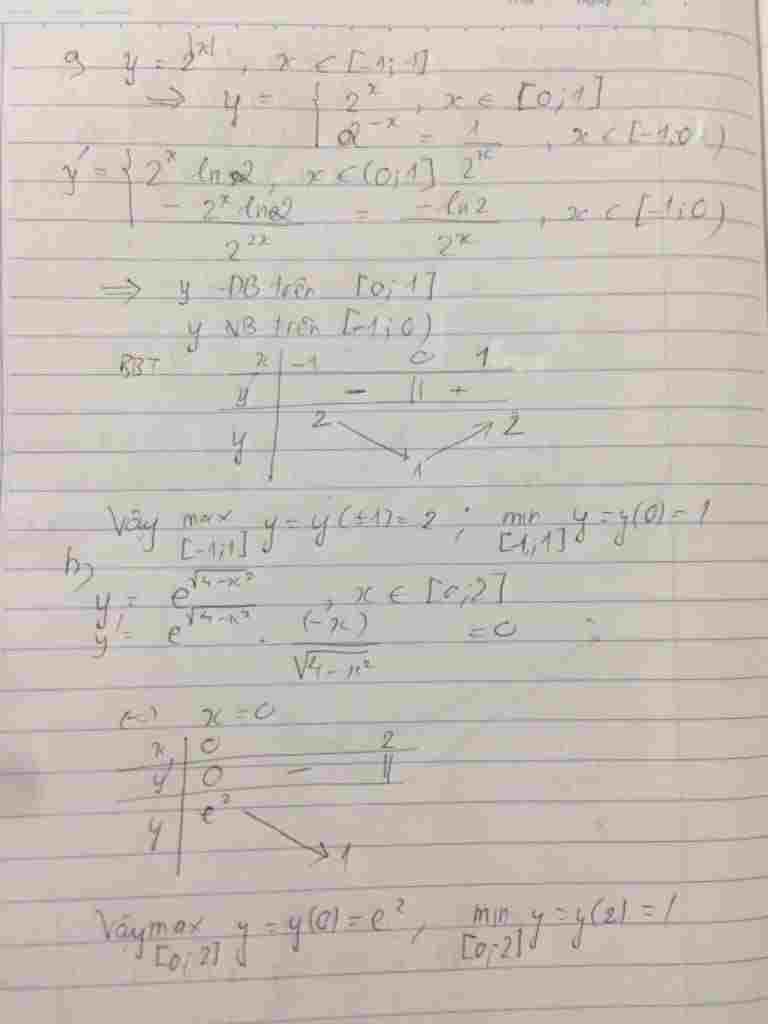 g) y = 2^|x| , x ∈ [-1; 1]
=> y = { 2^x , x ∈ [0; 1]
2^-x = 1/2^x , x ∈ [-1; 0)
y' = { 2^x ln 2, x ∈ (0; 1]
- 2^x ln 2 / 2^2x = -ln 2 / 2^x , x ∈ [-1; 0)
=> y ĐB trên [0; 1]
y NB trên [-1; 0)
BBT x | -1 0 1
y' | - || +
y | 2 ↘ 1 ↗ 2
Vậy max [-1; 1] y = y(±1) = 2 ; min [1; 1] y = y(0) = 1
h)
y = e^√(4-x²) , x ∈ [0; 2]
y' = e^√(4-x²) . (-x) / √(4-x²) = 0
(=) x = 0
x | 0 2
y' | 0 - ||
y | e² ↘ 1
Vậy max [0; 2] y = y(0) = e² , min [0; 2] y = y(2) = 1